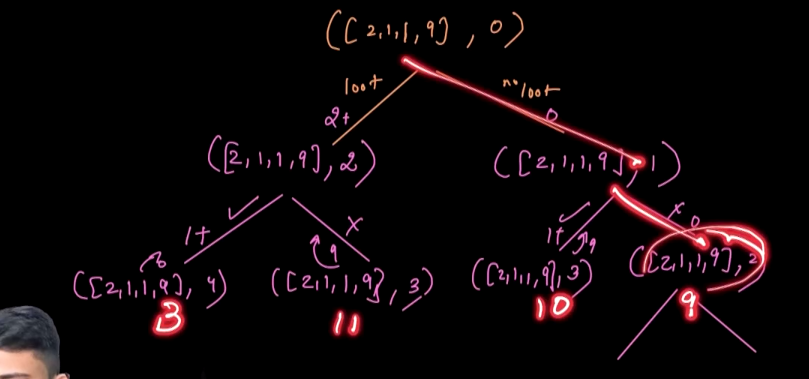 ([2,1,1,9], 0)
loot
no loot
2+
0
([2,1,1,9], 2)
([2,1,1,9], 1)
1+
x
9
1+
9
x
0
([2,1,1,9], 4)
([2,1,1,9], 3)
([2,1,1,9], 3)
([2,1,1,9], 2)
3
11
10
9